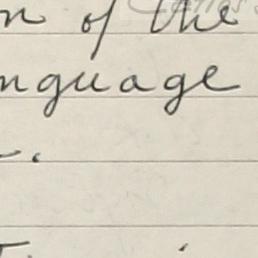 n of the
nguage